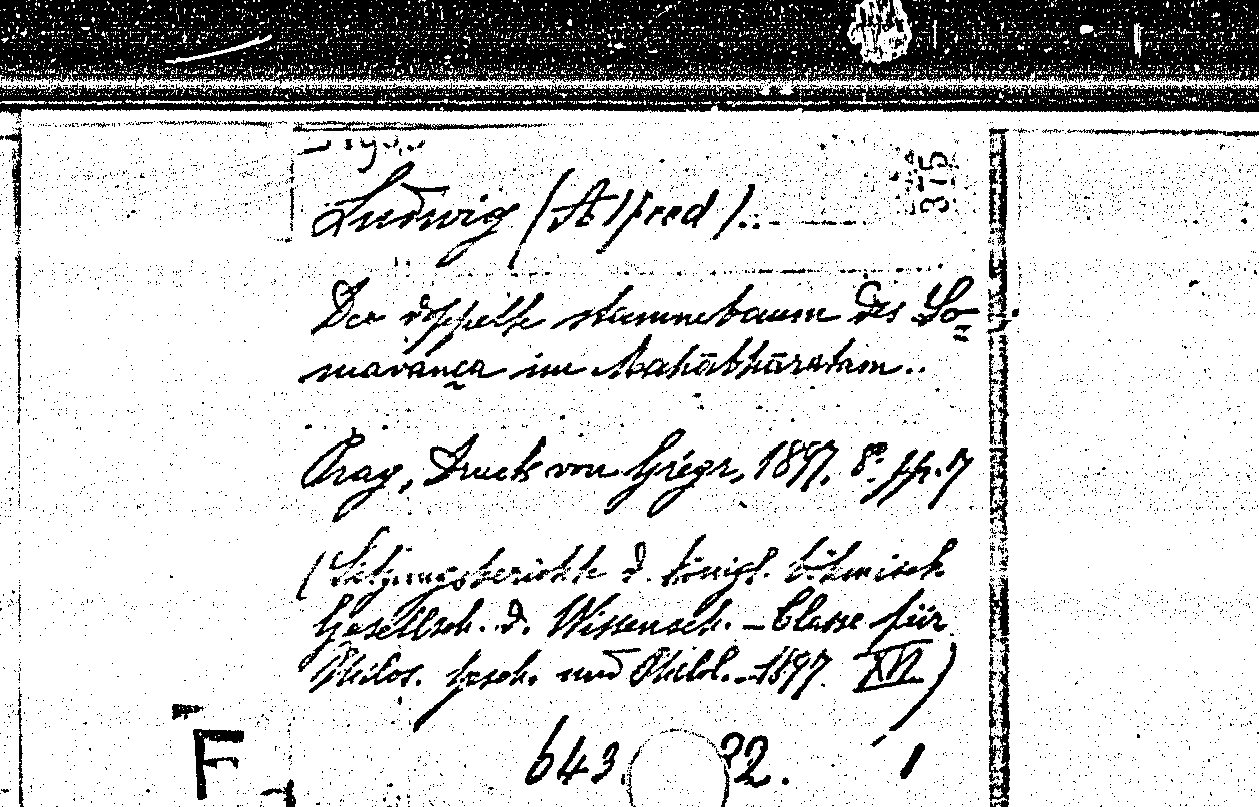 375
Ludwig (Alfred)..
Der doppelte stammebaum des So=
mavança im Mahābhāratam..
Prag, Druck von Grégr, 1897. 8º. pp. 7
(Sitzungsberichte d. königl. böhmisch
Gesellsch. d. Wissensch. – Classe für
Philos. gesch. und Philol. – 1897.
643 32. 1
F